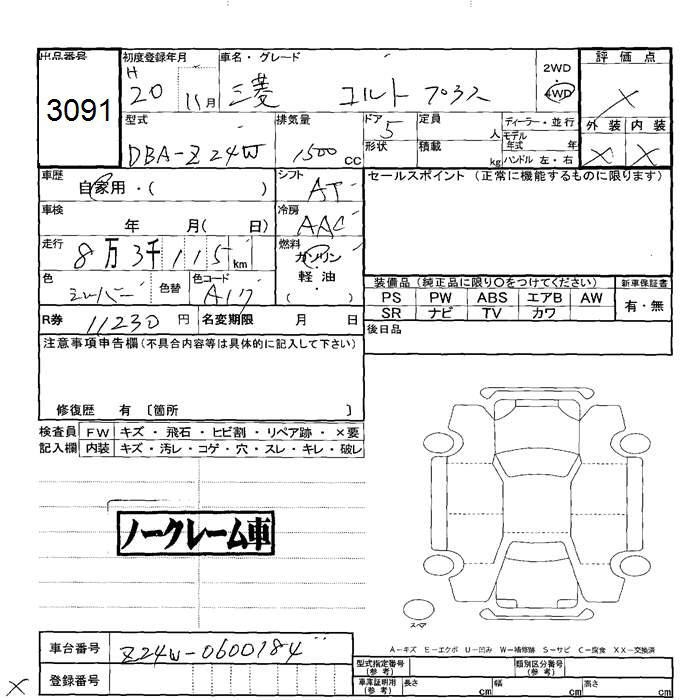 出品番号
3091
初度登録年月
H
20 11月
車名・グレード
三菱 コルト プラス
2WD
4WD
評価点
×
外装 内装
× ×
型式
DBA-Z24W
排気量
1500 CC
ドア 5
形状
定員 人
積載 kg
ディーラー・並行
モデル
年式 年
ハンドル 左・右
車歴
自家用・( )
シフト
AT
セールスポイント (正常に機能するものに限ります)
車検
年 月( 日)
冷房
AAC
走行
8万3千115km
燃料
ガソリン
軽・油
( )
色
シルバー
色替
色コード
A17
装備品 (純正品に限り○をつけてください)
新車保証書
PS PW ABS エアB AW
SR ナビ TV カワ
有・無
R券 11230 円
名変期限 月 日
後日品
注意事項申告欄(不具合内容等は具体的に記入して下さい)
修復歴 有 〔箇所 〕
検査員 FW キズ・飛石・ヒビ割・リペア跡・×要
記入欄 内装 キズ・汚レ・コゲ・穴・スレ・キレ・破レ
ノークレーム車
スペア
A-キズ E-エクボ U-凹み W-補修跡 S-サビ C-腐食 XX-交換済
車台番号 Z24W-0600184
登録番号
型式指定番号
(参考)
類別区分番号
(参考)
車庫証明用
(参考)
長さ cm 幅 cm 高さ cm
×